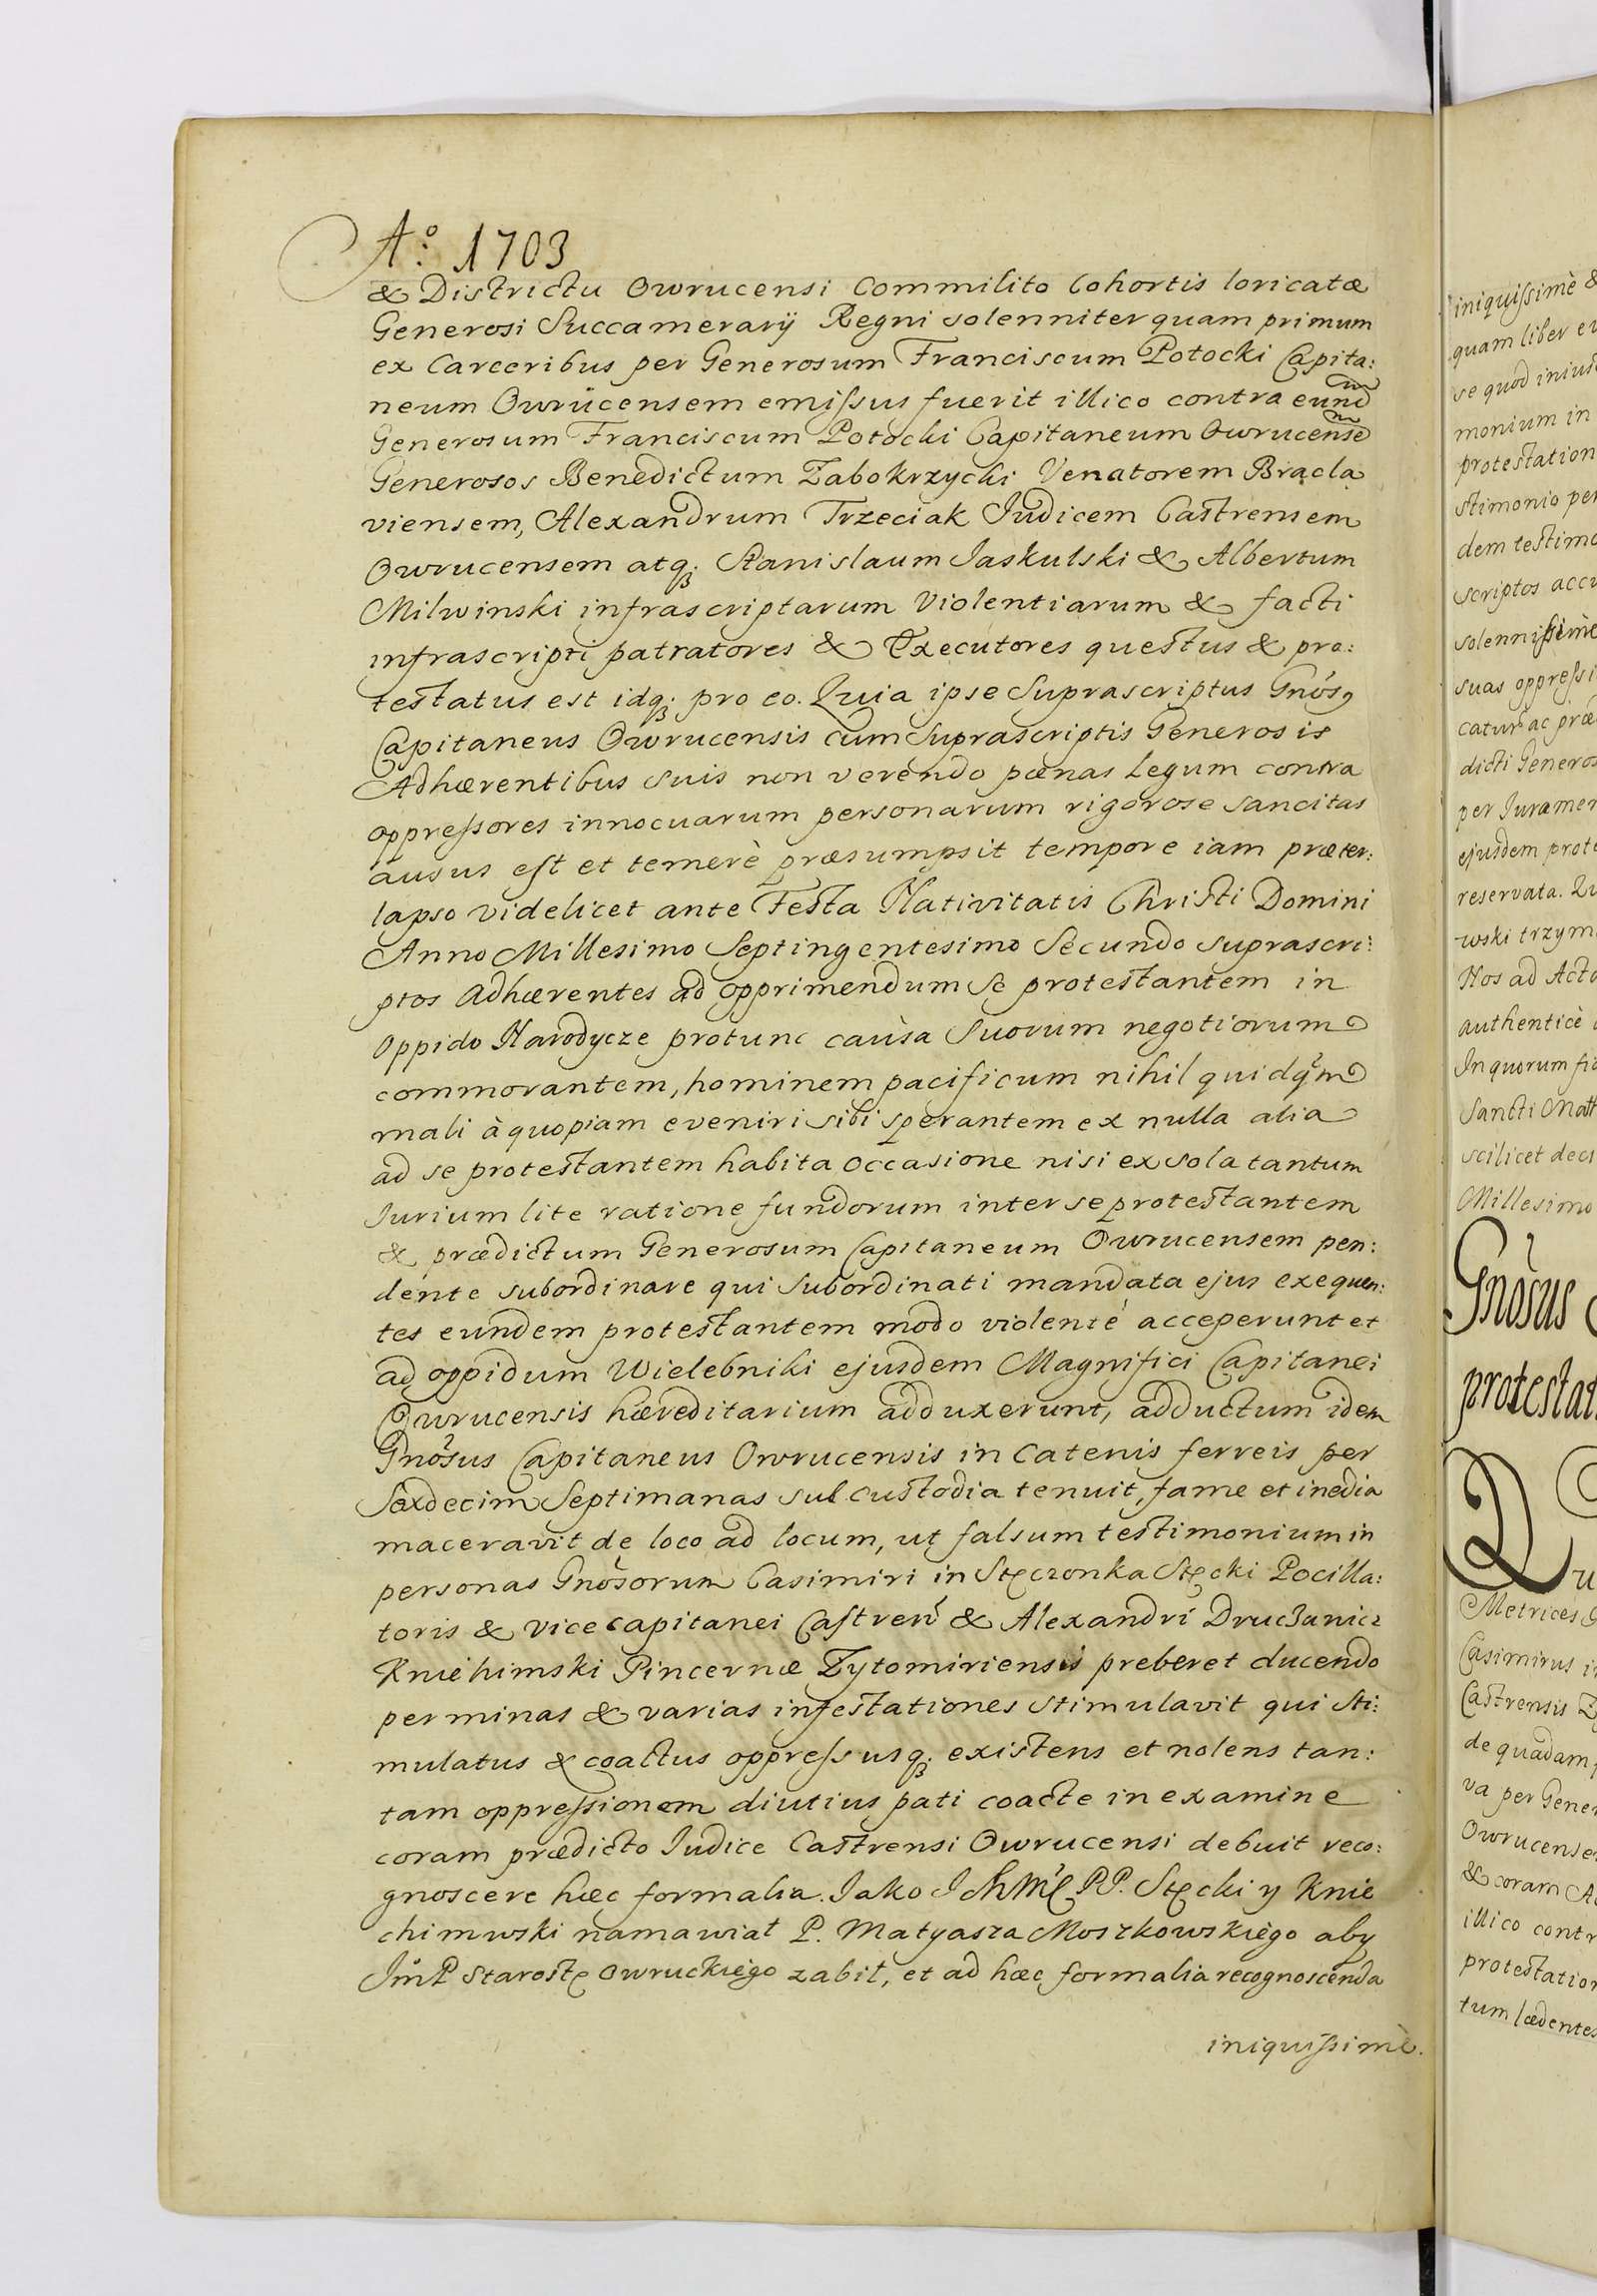 A:o 1703
& Districtu Owrucensi Commilito Cohortis loricatæ
Generosi Succamerarij Regni solenniter quam primum
ex Carceribus per Generosum Franciscum Potocki Capita:
neum Owrucensem emiſsus fuerit illico contra eundem
Generosum Franciscum Potocki Capitaneum Owrucensem
Generosos Benedictum Zabokrzycki Venatorem Bracla
viensem, Alexandrum Trzeciak Iudicem Castrensem
Owrucensem atq; Stanislaum Iaskulski & Albertum
Milwinski infrascriptarum Violentiarum & facti
infrascripti patratores & Executores questus & pro:
testatus est idq; pro eo. Quia ipse Suprascriptus Gnosus
Capitaneus Owrucensis cum Suprascriptis Generosis
Adhærentibus suis non verendo pœnas Legum contra
oppreſsores innocuarum personarum rigorose sancitas
ausus eſt et temerè præsumpsit tempore iam præter:
lapso videlicet ante Festa Nativitatis Christi Domini
Anno Millesimo Septingentesimo Secundo suprascri:
ptos Adhærentes ad opprimendum se protestantem in
Oppido Narodycze protunc causa Suorum negotiorum
commorantem, hominem pacificum nihil quidqm
mali à quopiam eveniri sibi sperantem ex nulla alia
ad se protestantem habita occasione nisi ex sola tantum
Iurium lite ratione fundorum inter se protestantem
& prædictum Generosum Capitaneum Owrucensem pen:
dente subordinare qui Subordinati mandata ejus exequen:
tes eundem protestantem modo violentè acceperunt et
ad oppidum Wielebniki ejusdem Magnifici Capitanei
Owrucensis hæreditarium adduxerunt, adductum idem
Gnosus Capitaneus Owrucensis in Catenis ferreis per
Sexdecim Septimanas sub custodia tenuit, fame et inedia
maceravit de loco ad locum, ut falsum testimonium in
personas Gnosorum Casimiri in Stęczonka Stęcki Pocilla:
toris & Vice capitanei Caſtren & Alexandri Druczanicz
Kniehimski Pincernæ Zytomiriensis preberet ducendo
per minas & varias infestationes stimulavit qui sti:
mulatus & coactus oppreſsusq; existens et nolens tan:
tam oppreſsionem diutius pati coacte in examine
coram prædicto Iudice Castrensi Owrucensi debuit reco:
gnoscere hæc formalia. Iako PP. Stęcki y Knie
chimwski namawiał P. Matyasza Moszkowskiego aby
ImP Starostę Owruckiego zabił, et ad hæc formalia recognoscenda
iniquiſsimè.
iniquiſsimè &
quam liber
se quod
monium in
protestation
stimonio per
dem testimo
scriptos
solenniſsimè
suas oppreſsi
catur ac præ
dicti Generos
per Iuramen
ejusdem prot
reservata.
wski trzym
Nos ad Acta
authenticè
In quorum
Sancti Matt
scilicet
Millesimo
Gnosus
protestat
Metrices
Casimirus
Castrensis
de quadam
va per Gener
Owrucense
& coram
illico contr
protestation
tum lædentes